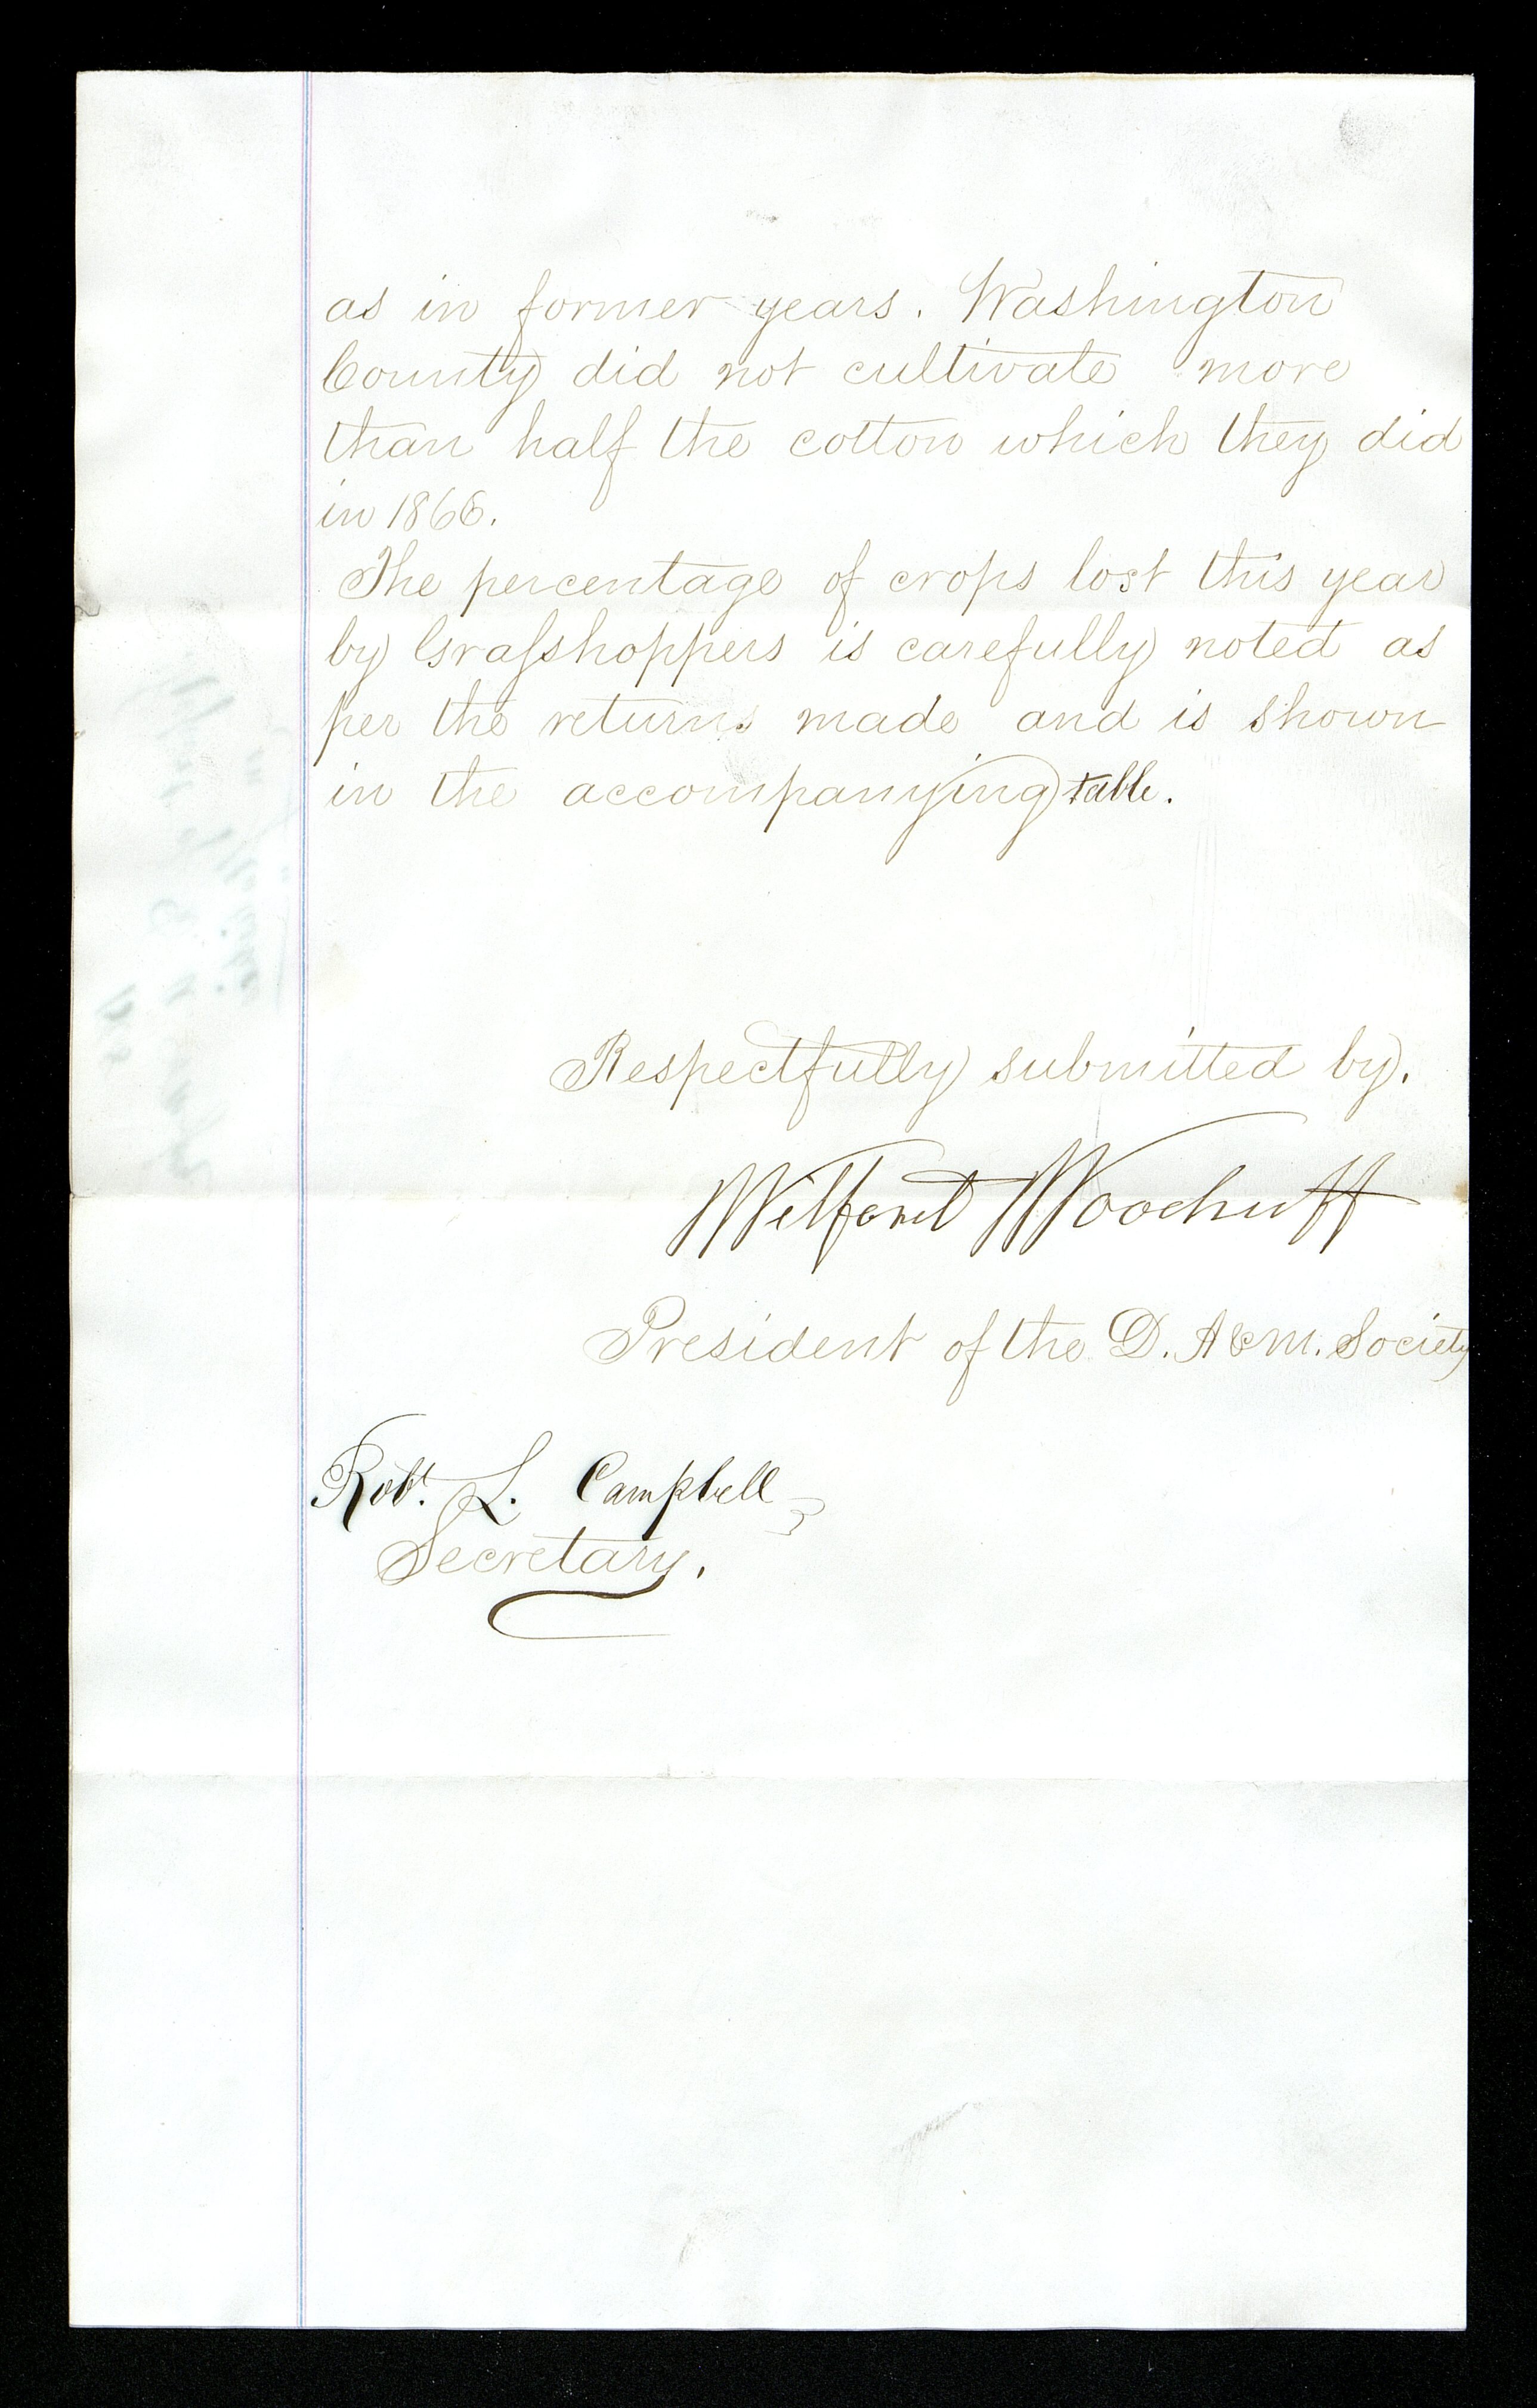 as in former years. Washington
County did not cultivate more
than half the cotton which they did
in 1866.
The percentage of crops lost this year
by Grasshoppers is carefully noted as
per the returns made and is shown
in the accompanying table.
Respectfully submitted by.
Wilford Woodruff
President of the D. A & M. Society
Robt. L. Campbell
Secretary.